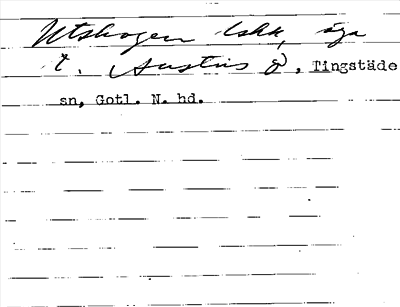 Utskogen lskk, äga
t. Austris 8, Tingstäde
sn, Gotl. N. hd.